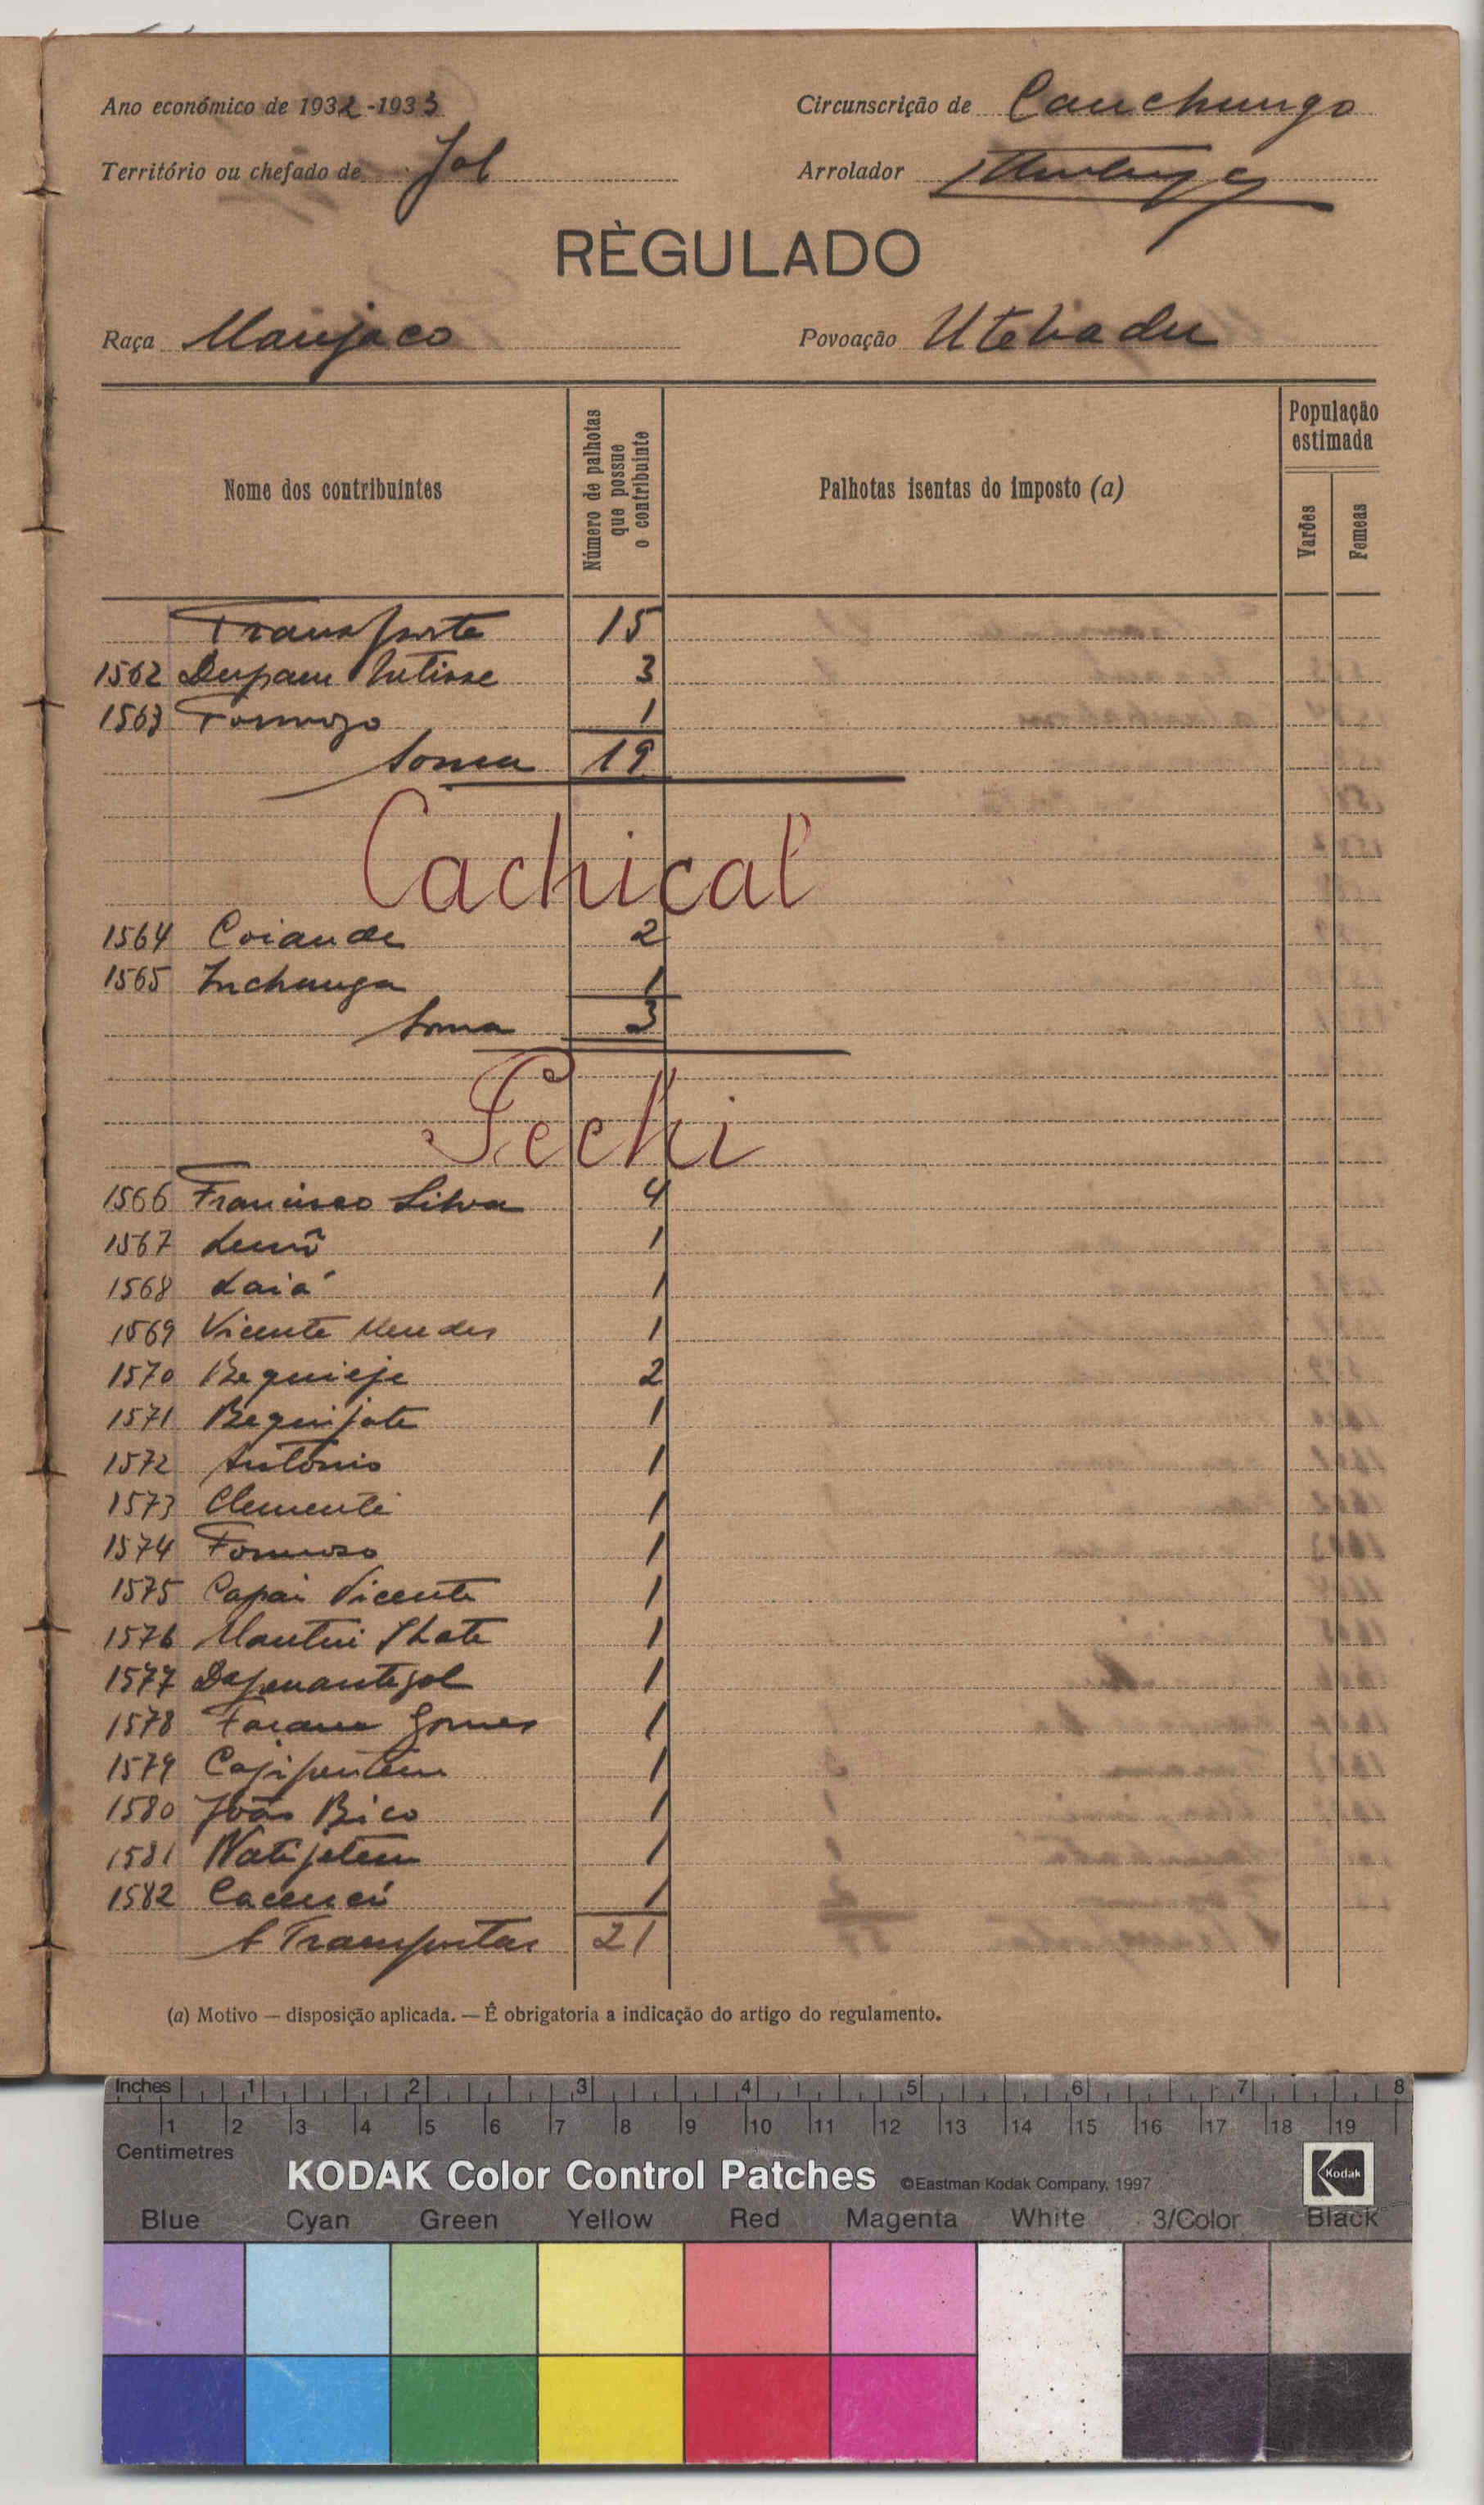 Ano económico de 1932-1933 Circunscrição de Canchungo
Território ou chefado de Jol Arrolador
RÈGULADO
Raça Manjaco Povoação Utebadu
Nome dos contribuintes
Número de palhotas que possue o contribuinte
Palhotas isentas do imposto (a)
População estimada
Varões Femeas
Transporte 15
1562 3
1563 Formozo 1
Soma 19
Cachical
1564 Coiande 2
1565 Inchanga 1
Soma 3
Pechi
1566 Francisco Silva 4
1567 1
1568 Laiá 1
1569 Vicente Mendes 1
1570 Bequieje 2
1571 Bequijate 1
1572 António 1
1573 Clemente 1
1574 Formoso 1
1575 Capai Vicente 1
1576 1
1577 1
1578 Gomes 1
1579 1
1580 João Bico 1
1581 Natijetem 1
1582 1
A Transportar 21
(a) Motivo — disposição aplicada. — É obrigatoria a indicação do artigo do regulamento.
Inches 1 2 3 4 5 6 7 8
1 2 3 4 5 6 7 8 9 10 11 12 13 14 15 16 17 18 19
Centimetres
KODAK Color Control Patches ©Eastman Kodak Company, 1997 Kodak
Blue Cyan Green Yellow Red Magenta White 3/Color Black